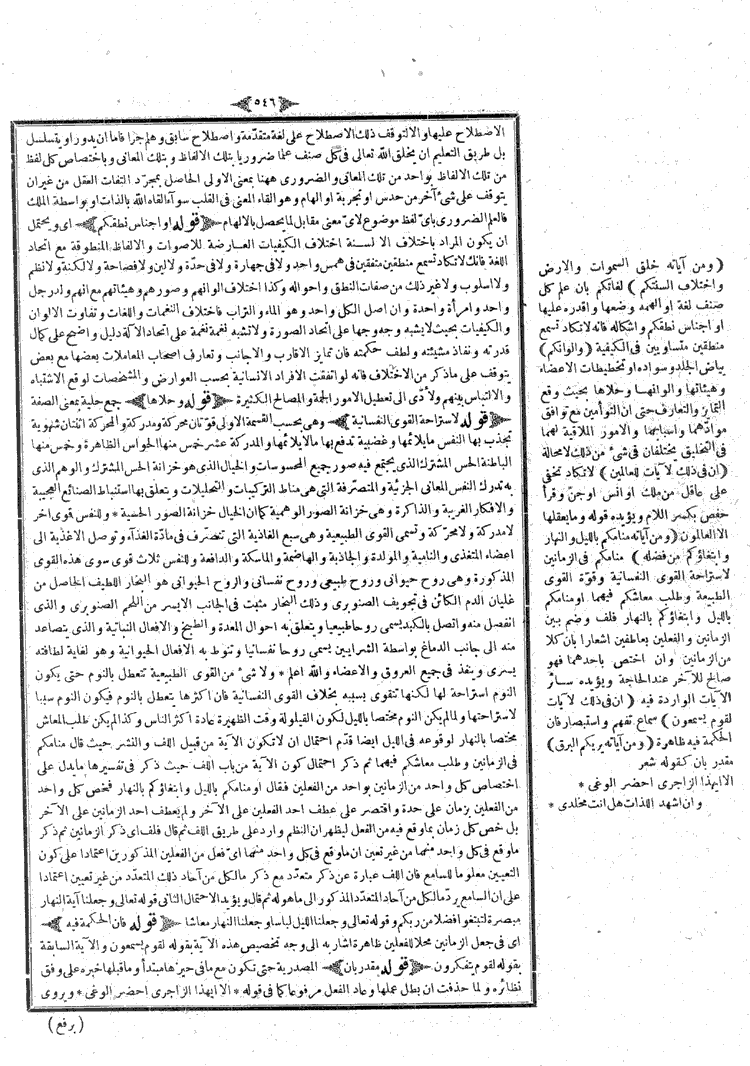 ﴿٥٤٦﴾
الاصطلاح عليها والالتوقف ذلك الاصطلاح على لغة متقدمة واصطلاح سابق وهلم جرا فاما ان يدور او يتسلسل
بل طريق التعليم ان يخلق الله تعالى فى كل صنف علما ضروريا بتلك الالفاظ وبتلك المعانى وباختصاص كل لفظ
من تلك الالفاظ بواحد من تلك المعانى والضرورى ههنا بمعنى الاولى الحاصل بمجرد التفات العقل من غير ان
يتوقف على شئ آخر من حدس او تجربة او الهام وهو القاء المعنى فى القلب سواء القاه الله بالذات او بواسطة الملك
فالعلم الضرورى باى لفظ موضوع لاى معنى مقابل لما يحصل بالالهام ﴿قوله او اجناس نطقكم﴾ اى ويحتمل
ان يكون المراد باختلاف الالسنة اختلاف الكيفيات العارضة للاصوات والالفاظ المنطوقة مع اتحاد
اللغة فانك لا تكاد تسمع منطقين متفقين فى همس واحد ولا فى جهارة ولا فى حدة ولا لين ولا فصاحة ولا لكنة ولا نظم
ولا اسلوب ولا غير ذلك من صفات النطق واحواله وكذا اختلاف الوانهم وصورهم وهيئاتهم مع انهم ولد رجل
واحد وامرأة واحدة وان اصل الكل واحد وهو الماء والتراب فاختلاف النغمات واللغات وتفاوت الالوان
والكيفيات بحيث لا يشبه وجه وجها على اتحاد الصورة ولا تشبه نغمة نغمة على اتحاد الآلة دليل واضح على كمال
قدرته ونفاذ مشيئته ولطف حكمته فان تمايز الاقارب والاجانب وتعارف اصحاب المعاملات بعضها مع بعض
يتوقف على ما ذكر من الاختلاف فانه لو اتفقت الافراد الانسانية بحسب العوارض والمشخصات لوقع الاشتباه
والالتباس بينهم ولأدى الى تعطيل الامور الجمة والمصالح الكثيرة ﴿قوله وحلاها﴾ جمع حلية بمعنى الصفة
﴿قوله لاستراحة القوى النفسانية﴾ وهى بحسب القسمة الاولى قوتان محركة ومدركة والمحركة اثنتان شهوية
تجذب بها النفس ما يلائمها وغضبية تدفع بها ما لا يلائمها والمدركة عشر خمس منها الحواس الظاهرة وخمس منها
الباطنة الحس المشترك الذى يجتمع فيه صور جميع المحسوسات والخيال الذى هو خزانة الحس المشترك والوهم الذى
به تدرك النفس المعانى الجزئية والمتصرفة التى هى مناط التركيبات والتحليلات ويتعلق بها استنباط الصنائع العجيبة
والافكار الغريبة والذاكرة وهى خزانة الصور الوهمية كما ان الخيال خزانة الصور الحسية * وللنفس قوى اخر
لا مدركة ولا محركة وتسمى القوى الطبيعية وهى سبع الغاذية التى تتصرف فى مادة الغذاء وتوصل الاغذية الى
اعضاء المتغذى والنامية والمولدة والجاذبة والهاضمة والماسكة والدافعة وللنفس ثلاث قوى سوى هذه القوى
المذكورة وهى روح حيوانى وروح طبيعى وروح نفسانى والروح الحيوانى هو البخار اللطيف الحاصل من
غليان الدم الكائن فى تجويف الصنوبرى وذلك البخار مثبت فى الجانب الايسر من اللحم الصنوبرى والذى
انفصل منه واتصل بالكبد يسمى روحا طبيعيا ويتعلق به احوال المعدة والطبخ والافعال النباتية والذى يتصاعد
منه الى جانب الدماغ بواسطة الشرايين يسمى روحا نفسانيا وتنوط به الافعال الحيوانية وهو لغاية لطافته
يسرى وينفذ فى جميع العروق والاعضاء والله اعلم * ولا شئ من القوى الطبيعية تتعطل بالنوم حتى يكون
النوم استراحة لها لكنها تتقوى بسببه بخلاف القوى النفسانية فان اكثرها يتعطل بالنوم فيكون النوم سببا
لاستراحتها ولما لم يكن النوم مختصا بالليل لكون القيلولة وقت الظهيرة عادة اكثر الناس وكذا لم يكن طلب المعاش
مختصا بالنهار لوقوعه فى الليل ايضا قدم احتمال ان لا تكون الآية من قبيل اللف والنشر حيث قال منامكم
فى الزمانين وطلب معاشكم فيهما ثم ذكر احتمال كون الآية من باب اللف حيث ذكر فى تفسيرها ما يدل على
اختصاص كل واحد من الزمانين بواحد من الفعلين فقال او منامكم بالليل وابتغاؤكم بالنهار فخص كل واحد
من الفعلين بزمان على حدة واقتصر على عطف احد الفعلين على الآخر ولم يعطف احد الزمانين على الآخر
بل خص كل زمان بما وقع فيه من الفعل ليظهر ان النظم وارد على طريق اللف ثم قال فلف اى ذكر الزمانين ثم ذكر
ما وقع فى كل واحد منهما من غير تعيين ان ما وقع فى كل واحد منهما اى فعل من الفعلين المذكورين اعتمادا على كون
التعيين معلوما للسامع فان اللف عبارة عن ذكر متعدد مع ذكر ما لكل من آحاد ذلك المتعدد من غير تعيين اعتمادا
على ان السامع يرد ما لكل من آحاد المتعدد المذكور الى ما هو له ثم قال ويؤيد الاحتمال الثانى قوله تعالى وجعلنا آية النهار
مبصرة لتبتغوا فضلا من ربكم وقوله تعالى وجعلنا الليل لباسا وجعلنا النهار معاشا ﴿قوله فان الحكمة فيه﴾
اى فى جعل الزمانين محلا للفعلين ظاهرة اشار به الى وجه تخصيص هذه الآية بقوله لقوم يسمعون والآية السابقة
بقوله لقوم يتفكرون ﴿قوله مقدر بان﴾ المصدرية حتى تكون مع ما فى حيزها مبتدأ وما قبلها خبره على وفق
نظائره ولما حذفت ان بطل عملها وعاد الفعل مرفوعا كما فى قوله * الا ايهذا الزاجرى احضر الوغى * ويروى
(برفع)
(ومن آياته خلق السموات والارض
واختلاف السنتكم) لغاتكم بان علم كل
صنف لغة او الهمه وضعها واقدره عليها
او اجناس نطقكم واشكاله فانه لا تكاد تسمع
منطقين متساويين فى الكيفية (والوانكم)
بياض الجلد وسواده او تخطيطات الاعضاء
وهيئاتها والوانها وحلاها بحيث وقع
التمايز والتعارف حتى ان التوأمين مع توافق
موادهما واسبابهما والامور الملاقية لهما
فى التخليق يختلفان فى شئ من ذلك لا محالة
(ان فى ذلك لآيات للعالمين) لا تكاد تخفى
على عاقل من ملك او انس او جن وقرأ
حفص بكسر اللام ويؤيده قوله وما يعقلها
الا العالمون (ومن آياته منامكم بالليل والنهار
وابتغاؤكم من فضله) منامكم فى الزمانين
لاستراحة القوى النفسانية وقوة القوى
الطبيعية وطلب معاشكم فيهما او منامكم
بالليل وابتغاؤكم بالنهار فلف وضم بين
الزمانين والفعلين بعاطفين اشعارا بان كلا
من الزمانين وان اختص باحدهما فهو
صالح للآخر عند الحاجة ويؤيده سائر
الآيات الواردة فيه (ان فى ذلك لآيات
لقوم يسمعون) سماع تفهم واستبصار فان
الحكمة فيه ظاهرة (ومن آياته يريكم البرق)
مقدر بان كقوله شعر
الا ايهذا الزاجرى احضر الوغى *
وان اشهد اللذات هل انت مخلدى *